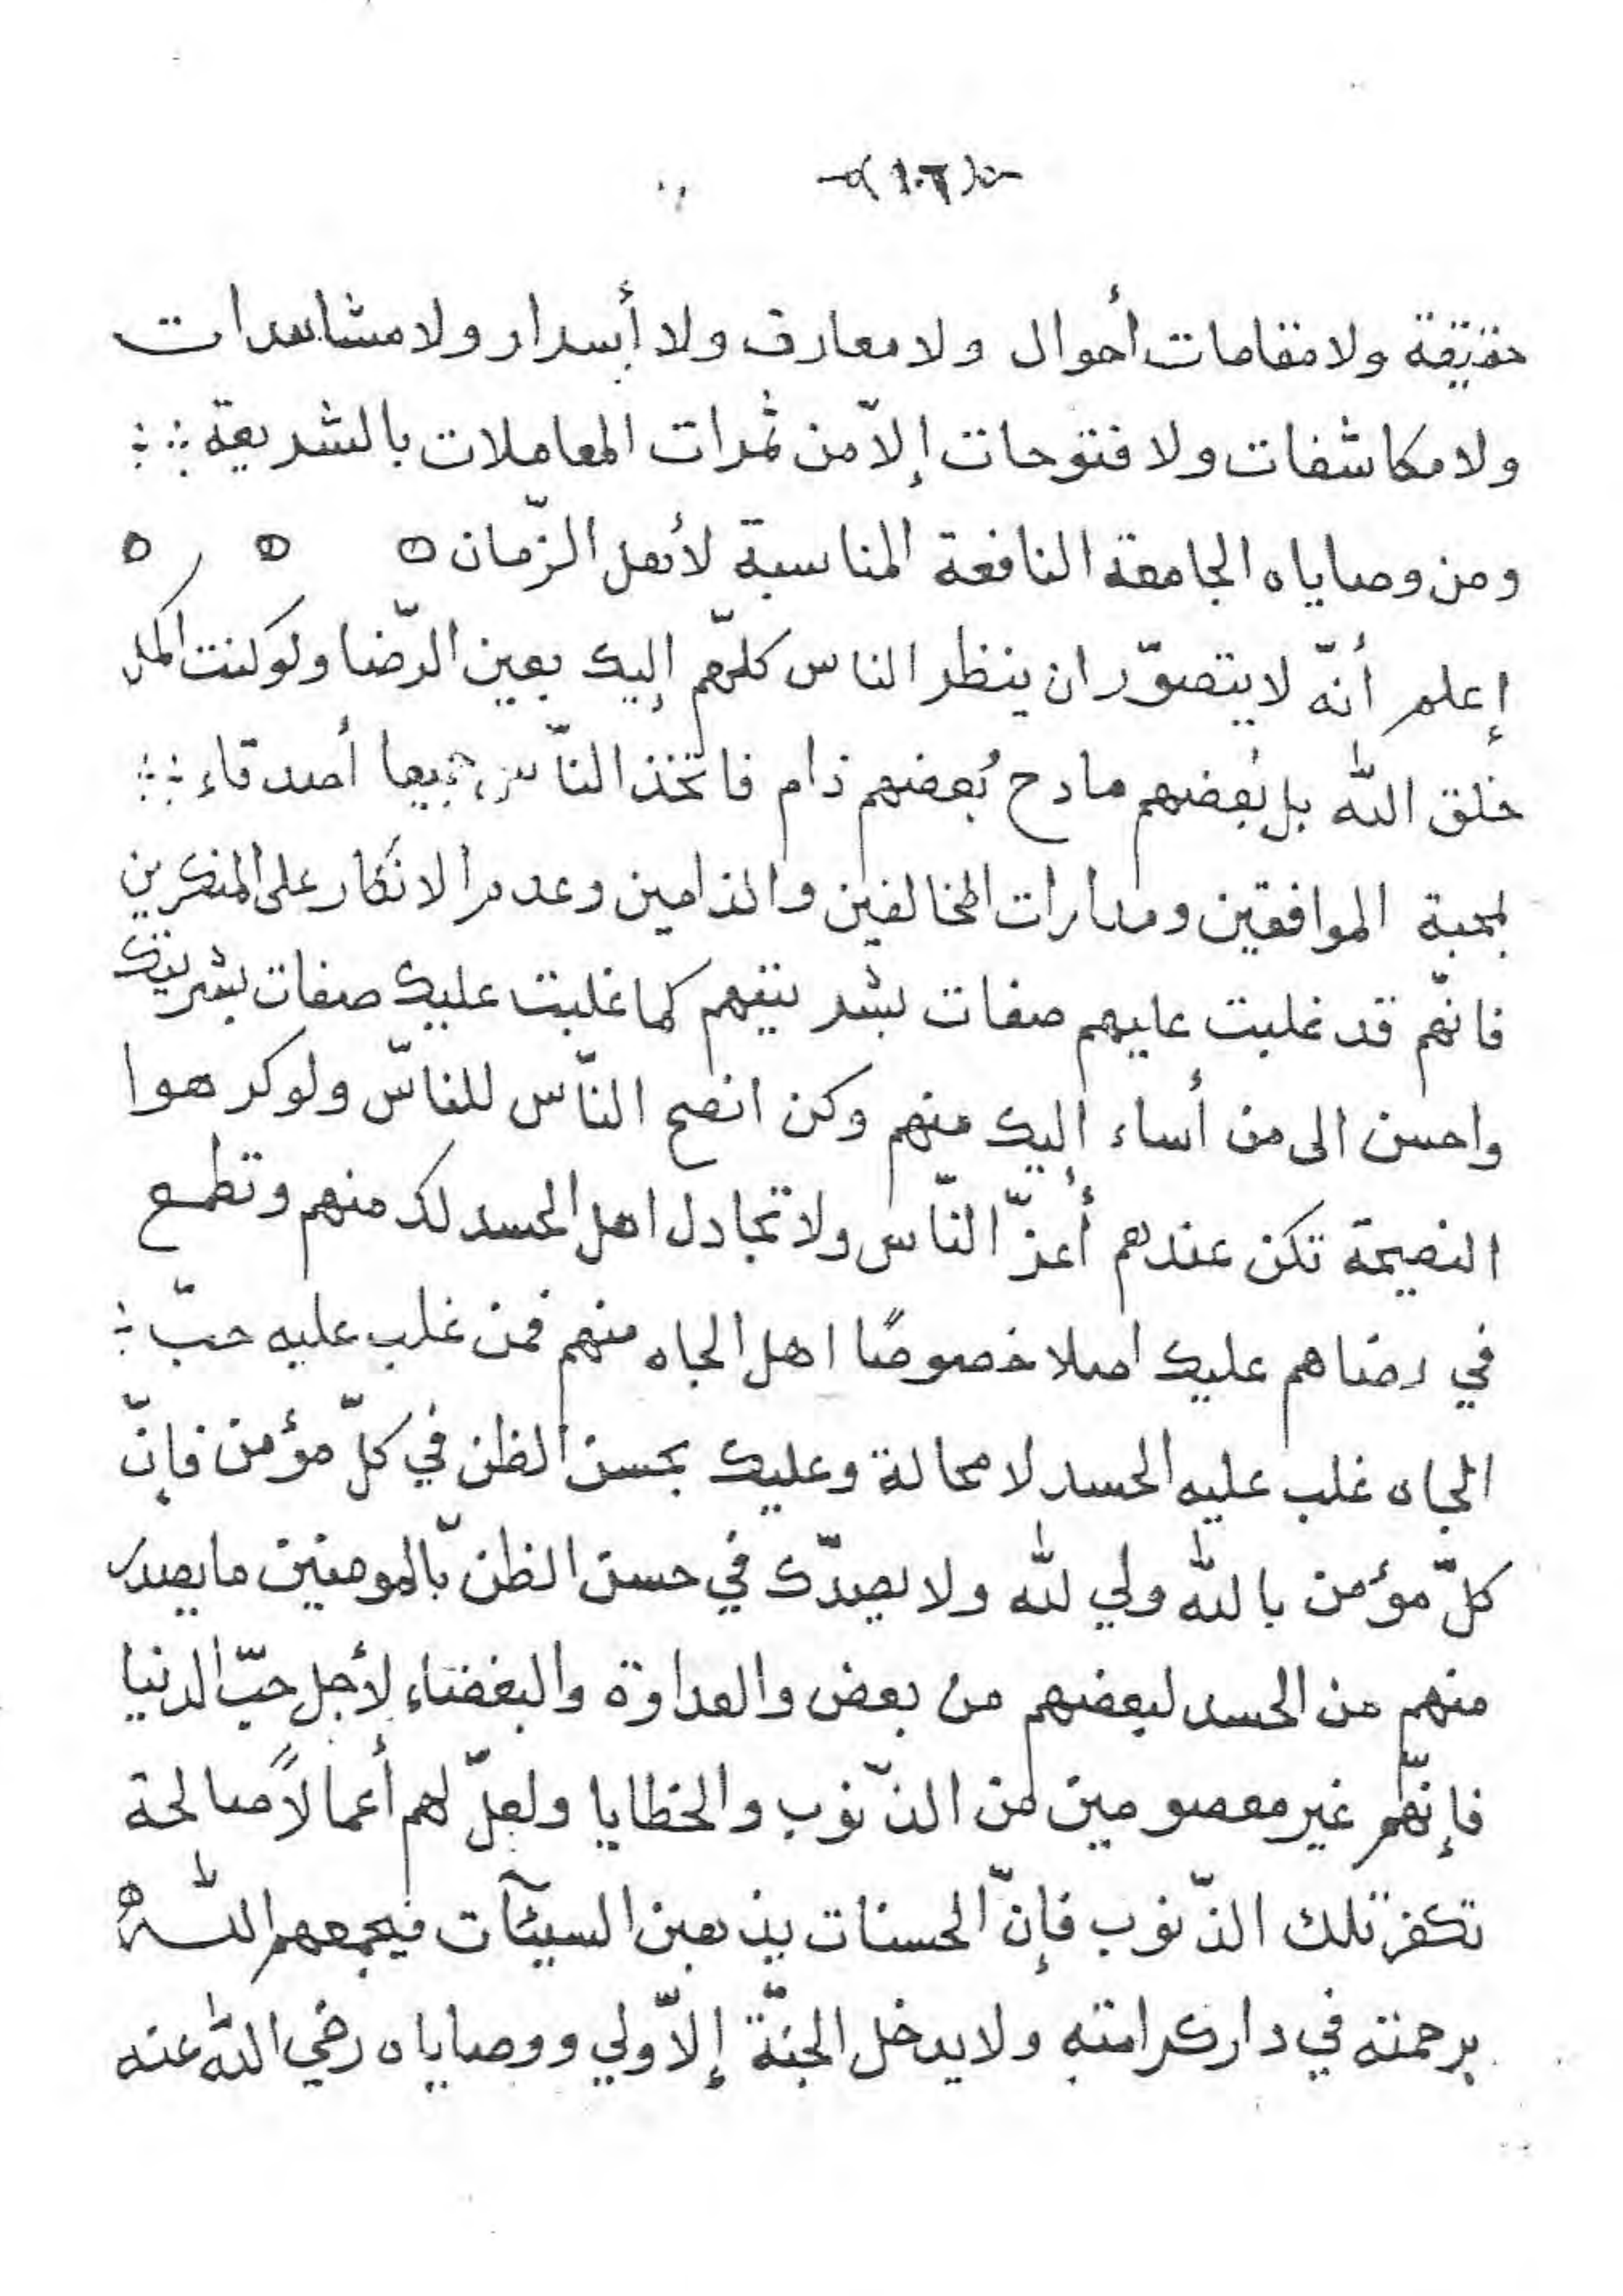 (١٠٦)
حقيقة ولا مقامات أحوال ولا معارف ولا أسرار ولا مشاهدات
ولا مكاشفات ولا فتوحات إلاّ من ثمرات المعاملات بالشريعة
ومن وصاياه الجامعة النافعة المناسبة لأهل الزّمان
إعلم أنّه لا يتصوّر ان ينظر الناس كلّهم إليك بعين الرّضا ولو كنت اكمل
خلق الله بل بُعضهم مادح بُعضهم ذام فاتخذ النّاس جميعا أصدقاء
بمحبة الموافقين ومدارات المخالفين والذامين وعدم الانكار على المنكرين
فانّهم قد غلبت عليهم صفات بشريتهم كما غلبت عليك صفات بشريتك
واحسن الى من أساء إليك منهم وكن انصح النّاس للناسّ ولو كرهوا
النصيحة تكن عندهم أعزّ النّاس ولا تجادل اهل الحسد لك منهم وتطمع
في رضاهم عليك اصلا خصوصًا اهل الجاه منهم فمن غلب عليه حبّ
الجاه غلب عليه الحسد لا محالة وعليك بحسن الظن في كلّ مؤمن فإنّ
كلّ مؤمن بالله ولي لله ولا يصدّك في حسن الظنّ بالمومنين ما يصدر
منهم من الحسد لبعضهم من بعض والعداوة والبغضاء لأجل حبّ الدنيا
فإنّهم غير معصومين من الذّنوب والخطايا ولعلّ لهم أعمالاً صالحة
تكفر تلك الذّنوب فإنّ الحسنات يذهبن السيئآت فيجمعهم الله
برحمته في دار كرامته ولا يدخل الجنّة إلاّ ولي ووصاياه رضي الله عنه